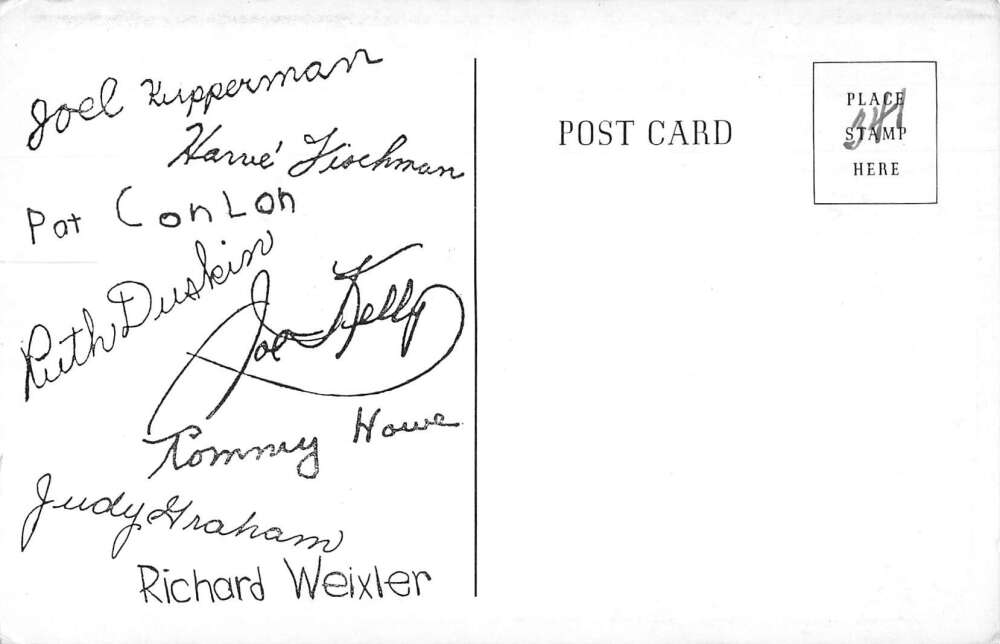 Joel Kupperman
Harve' Fischman
Pat ConLon
Ruth Duskin
Joe Kelly
Tommy Howe
Judy Graham
Richard Weixler
POST CARD
PLACE
STAMP
HERE